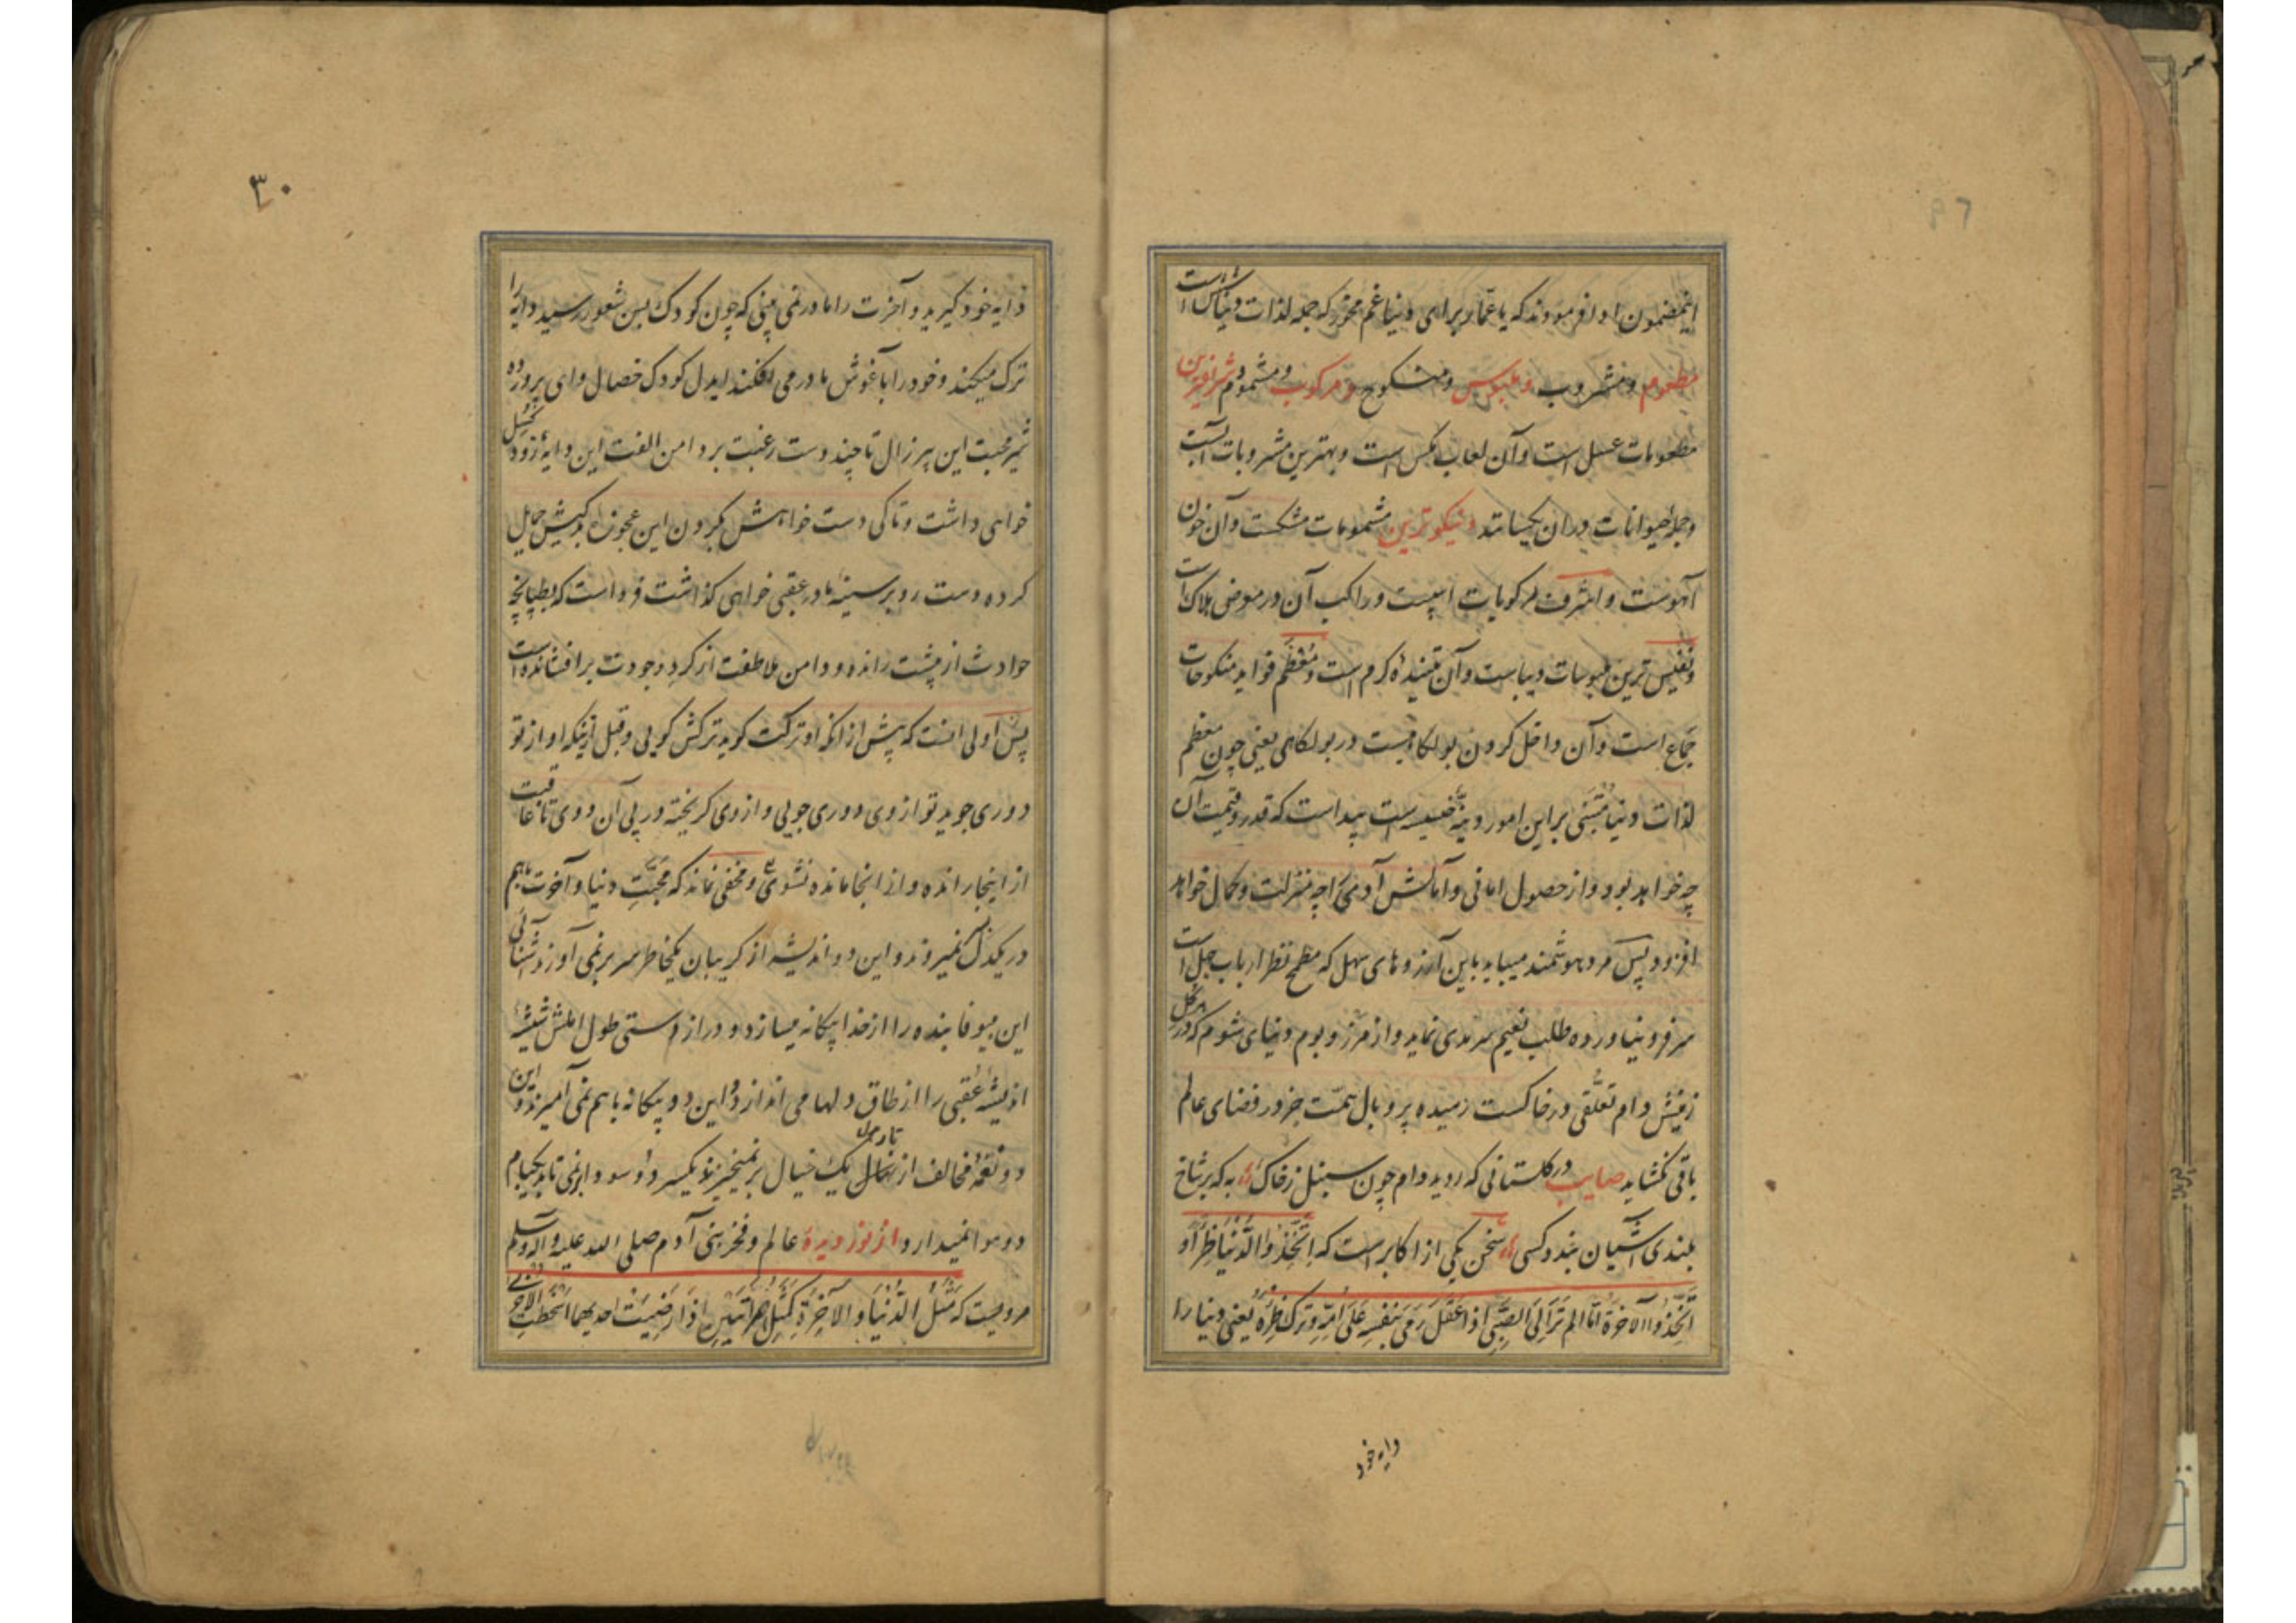 اینمضمون ادا فرمودند که یا عمار برای دنیا غم مخور که جمله لذات دنیا شش است
مطعوم و مشروب و ملبوس و منکوح و مرکوب و مشموم و شریفترین
مطعومات عسل است و آن لعاب مگس است و بهترین مشروبات آبست
و جمله حیوانات در ان یکسانند و نیکوترین مشمومات مشکست و آن خون
آهوست و اشرف مرکوبات اسپست و راکب آن در معرض هلاک است
و نفیس ترین ملبوسات دیباست و آن تنیدهٔ کرم است و معظم فواید منکوحات
جماع است و آن داخل کردن بولگاهیست در بولگاهی یعنی چون معظم
لذات دنیا مبتنی بر این امور دنیهٔ خسیسه است پیداست که قدر و قیمت آن
چه خواهد بود و از حصول امانی و آمالش آدمی را چه منزلت و کمال خواهد
افزود پس مرد هوشمند میباید باین آرزوهای سهل که مطمح نظر ارباب جهل است
سر فرو نیاورده طلب نعیم سرمدی نماید و از مرز و بوم دنیای شوم که در هر گل
زمینش دام تعلقی در خاکست رمیده پر و بال همت جز در فضای عالم
باقی نگشاید صایب در گلستانی که روید دام چون سنبل ز خاک به که بر شاخ
بلندی آشیان بندد کسی سخن یکی از اکابر است که اتخذوا الدنیا ظئرا و
اتخذوا الآخرة اما الم تر الی الصبی اذا عقل رمی بنفسه علی امه و ترک ظئره یعنی دنیا را
دایه خود
۳۰
دایه خود گیرید و آخرت را مادر نمی بینی که چون کودک بسن شعور رسید دایه را
ترک میکند و خود را بآغوش مادر می افکند ایدل کودک خصال وای پرورده
شیر محبت این پیر زال تا چند دست رغبت بر دامن الفت این دایهٔ زود گسل
خواهی داشت و تا کی دست خواهش بگردن این عجوزه بدکیش حمایل
کرده دست رد بر سینه مادر عقبی خواهی گذاشت فرداست که بطپانچه
حوادث از پشت رانده و دامن ملاطفت از گرد وجودت برافشانده است
پس اولی انست که پیش از انکه او ترکت گوید ترکش گویی و قبل از اینکه او از تو
دوری جوید تو از وی دوری جویی و از وی گریخته در پی آن دوی تا عاقبت
از اینجا رانده و از انجا مانده نشوی و مخفی نماند که محبت دنیا و آخرت باهم
در یکدل نمیروند و این دو اندیشه از گریبان یکخاطر سر برنمی آورند آشنائی
این بیوفا بنده را از خدا بیگانه میسازد و دراز دستی طول املش شیشهٔ
اندیشه عقبی را از طاق دلها می اندازد و این دو بیگانه با هم نمی آمیزند و این
دو نغمهٔ مخالف از تار یک خیال برنمیخیزند یکسر دو سودا برنمی تابد یکبام
دو هوا نمیدارد و از نور دیدهٔ عالم و فخر بنی آدم صلی الله علیه و آله و سلم
مرویست که مثل الدنیا و الآخرة کمثل امراتین اذا ارضیت احدیهما اسخطت الاخری